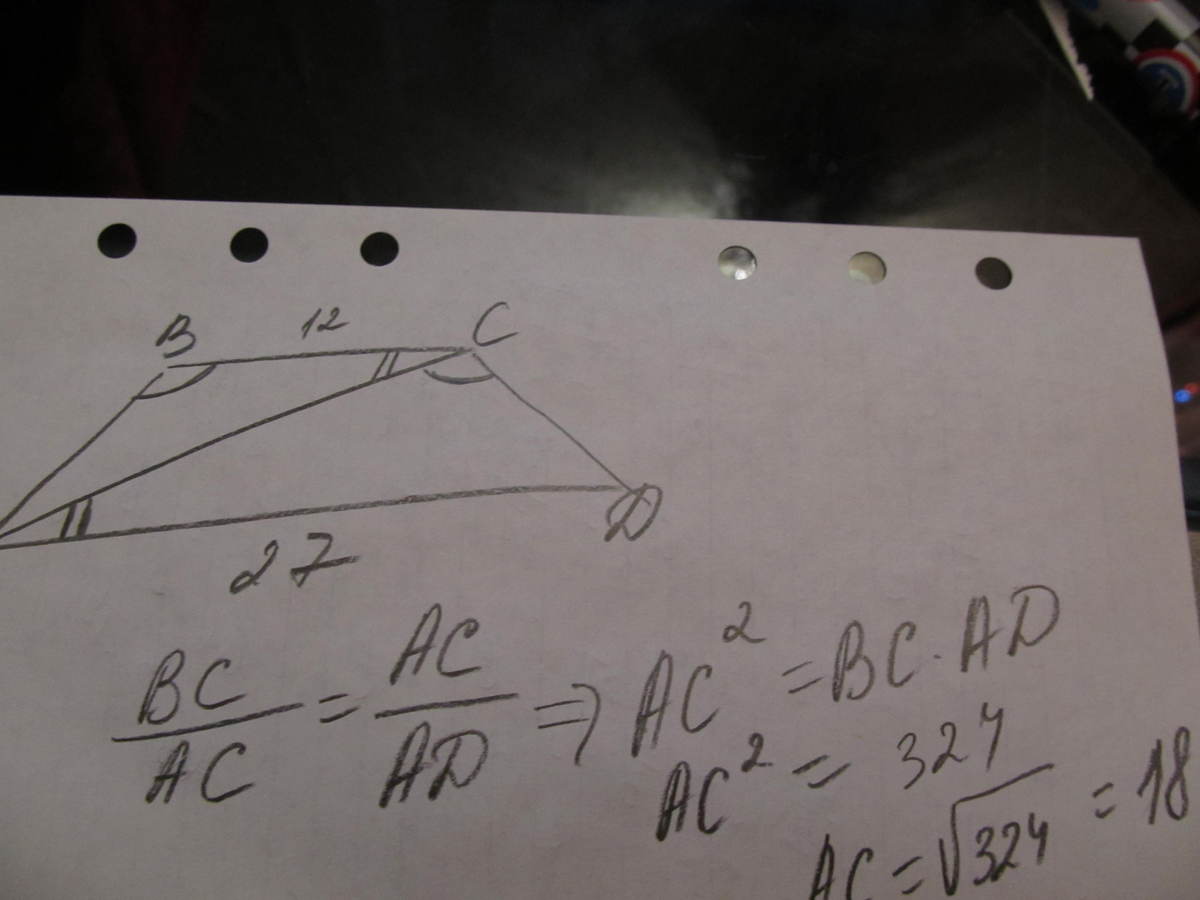 B 12 C
D
27
BC/AC = AC/AD ⇒ AC² = BC · AD
AC² = 324
AC = √324 = 18